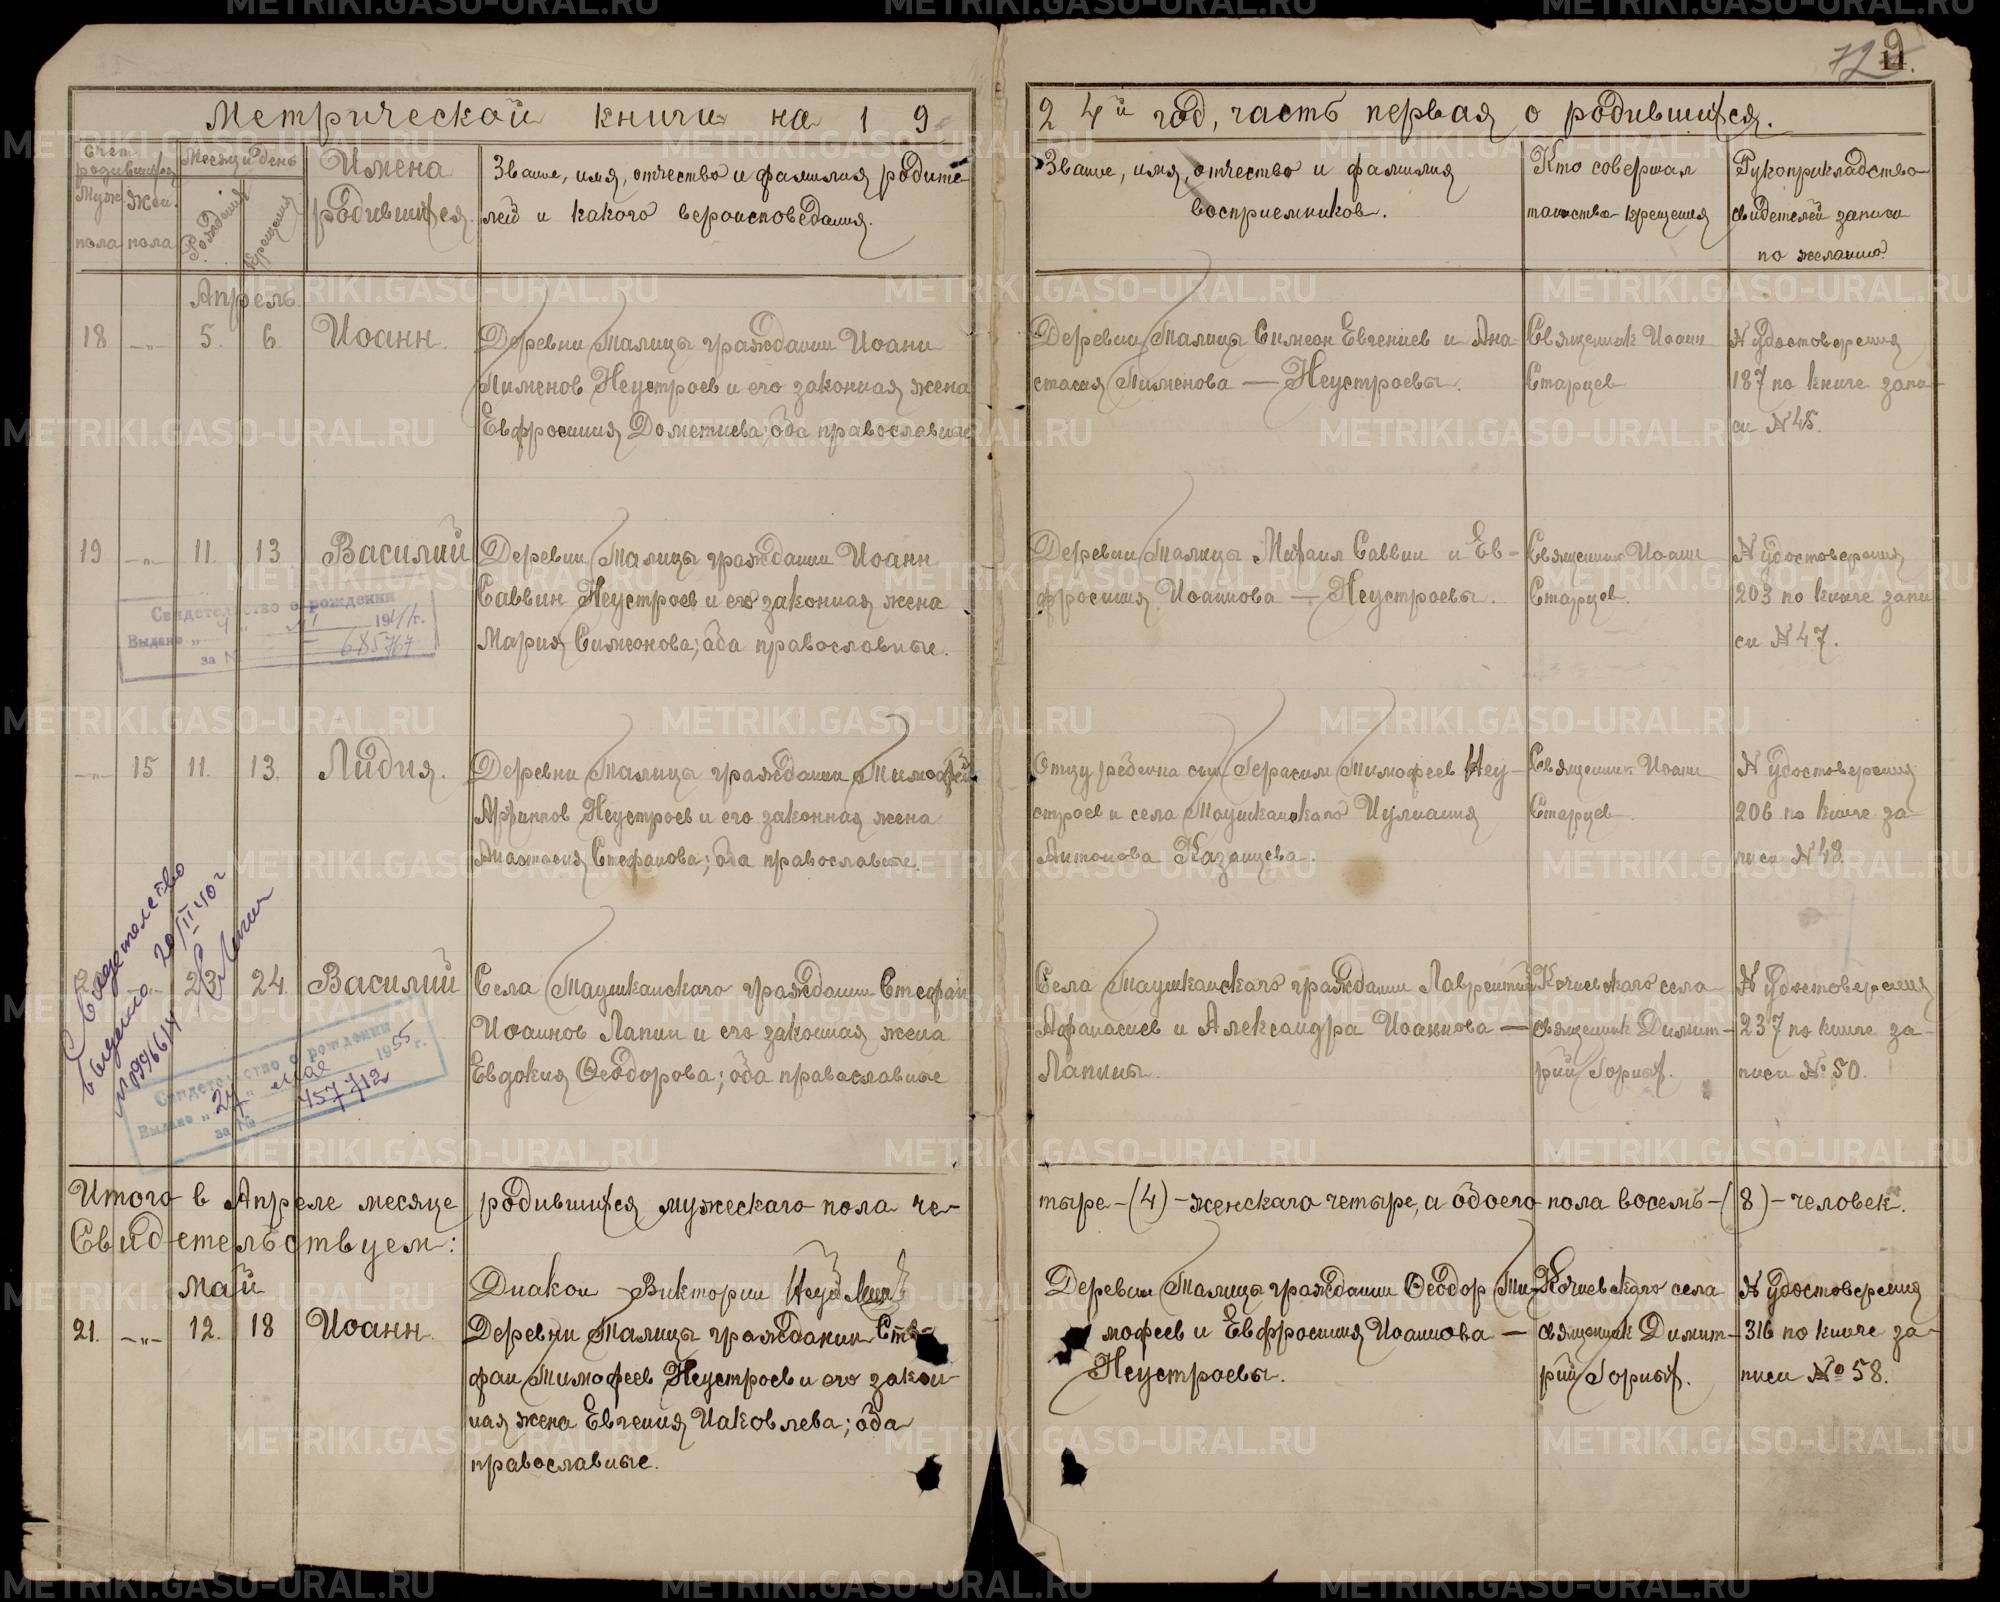 Метрической книги на 19
24й год, часть первая о родившихся.
9
Счет родившихся
Муж. пола
Жен. пола
Месяц и день
Рождения
Крещения
Имена
родившихся.
Звание, имя, отчество и фамилия родите-
лей и какого вероисповедания.
Звание, имя, отчество и фамилия
восприемников.
Кто совершал
таинство крещения
Рукоприкладство
свидетелей записи
по желанию
Апрель
18 -„- 5. 6. Иоанн.
Деревни Талицы гражданин Иоанн
Пименов Неустроев и его законная жена
Евфросиния Дометиева; оба православные
Деревни Талицы Симеон Евгениев и Ана-
стасия Пименова — Неустроевы.
Священник Иоанн
Старцев
N удостоверения
187 по книге запи-
си N 45.
19 -„- 11. 13 Василий
Деревни Талицы гражданин Иоанн
Саввин Неустроев и его законная жена
Мария Симеонова; оба православные.
Деревни Талицы Михаил Саввин и Ев-
фросиния Иоаннова — Неустроевы.
Священник Иоанн
Старцев.
N удостоверения
203 по книге запи
си N 47.
Свидетельство о рождении
Выдано „ 194 г.
за № 685767
-„- 15 11. 13. Лидия.
Деревни Талицы гражданин Тимофей
Афиннов Неустроев и его законная жена
Анастасия Стефанова; оба православные.
Отцу ребенка сын Герасим Тимофеев Неу-
строев и села Таушканскаго Иулиания
Антонова Казанцева.
Священник Иоанн
Старцев
N удостоверения
206 по книге за-
писи N 48.
Свидетельство
выдано 20/II 40 г
23 24 Василий
Села Таушканскаго гражданин Стефан
Иоаннов Лапин и его законная жена
Евдокия Феодорова; оба православные
Села Таушканскаго гражданин Лаврентий
Афанасиев и Александра Иоаннова —
Лапины.
Кочневскаго села
священник Димит-
рий Горных.
N удостоверения
237 по книге за-
писи № 50.
Свидетельство о рождении
Выдано „24" мая 1955 г.
за № 457712
Итого в Апреле месяце родившихся мужескаго пола че-
тыре-(4)-женскаго четыре, а обоего пола восемь-(8)-человек.
Свидетельствуем:
Диакон Викторин
Май
21. -„- 12. 18 Иоанн.
Деревни Талицы гражданин Сте-
фан Тимофеев Неустроев и его закон-
ная жена Евгения Иаковлева; оба
православные.
Деревни Талицы гражданин Феодор Ти-
мофеев и Евфросиния Иоаннова —
Неустроевы.
Кочневскаго села
священник Димит-
рий Горных.
N удостоверения
316 по книге за-
писи № 58.
METRIKI.GASO-URAL.RU